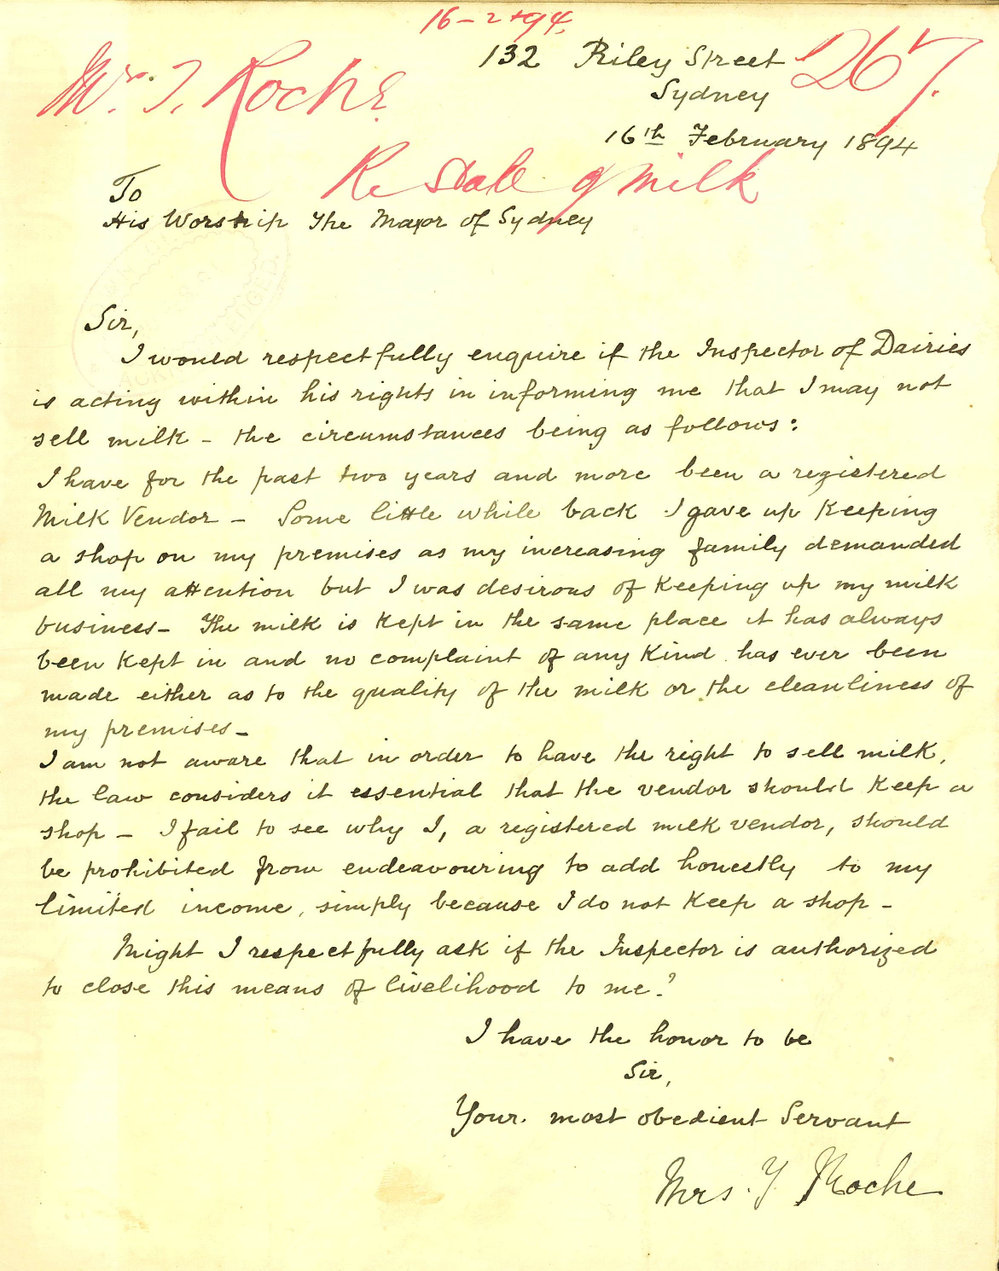 16-2-94.
132 Riley Street
Mr. T. Roche
267.
Sydney
16th February 1894
Re Sale of Milk
To
His Worship The Mayor of Sydney
Sir,
I would respectfully enquire if the Inspector of Dairies
is acting within his rights in informing me that I may not
sell milk - the circumstances being as follows:
I have for the past two years and more been a registered
Milk Vendor - Some little while back I gave up keeping
a shop on my premises as my increasing family demanded
all my attention but I was desirous of keeping up my milk
business - The milk is kept in the same place it has always
been kept in and no complaint of any kind has ever been
made either as to the quality of the milk or the cleanliness of
my premises -
I am not aware that in order to have the right to sell milk,
the law considers it essential that the vendor should keep a
shop - I fail to see why I, a registered milk vendor, should
be prohibited from endeavouring to add honestly to my
limited income, simply because I do not keep a shop -
Might I respectfully ask if the Inspector is authorized
to close this means of livelihood to me?
I have the honor to be
Sir,
Your. most obedient Servant
Mrs. T. Roche